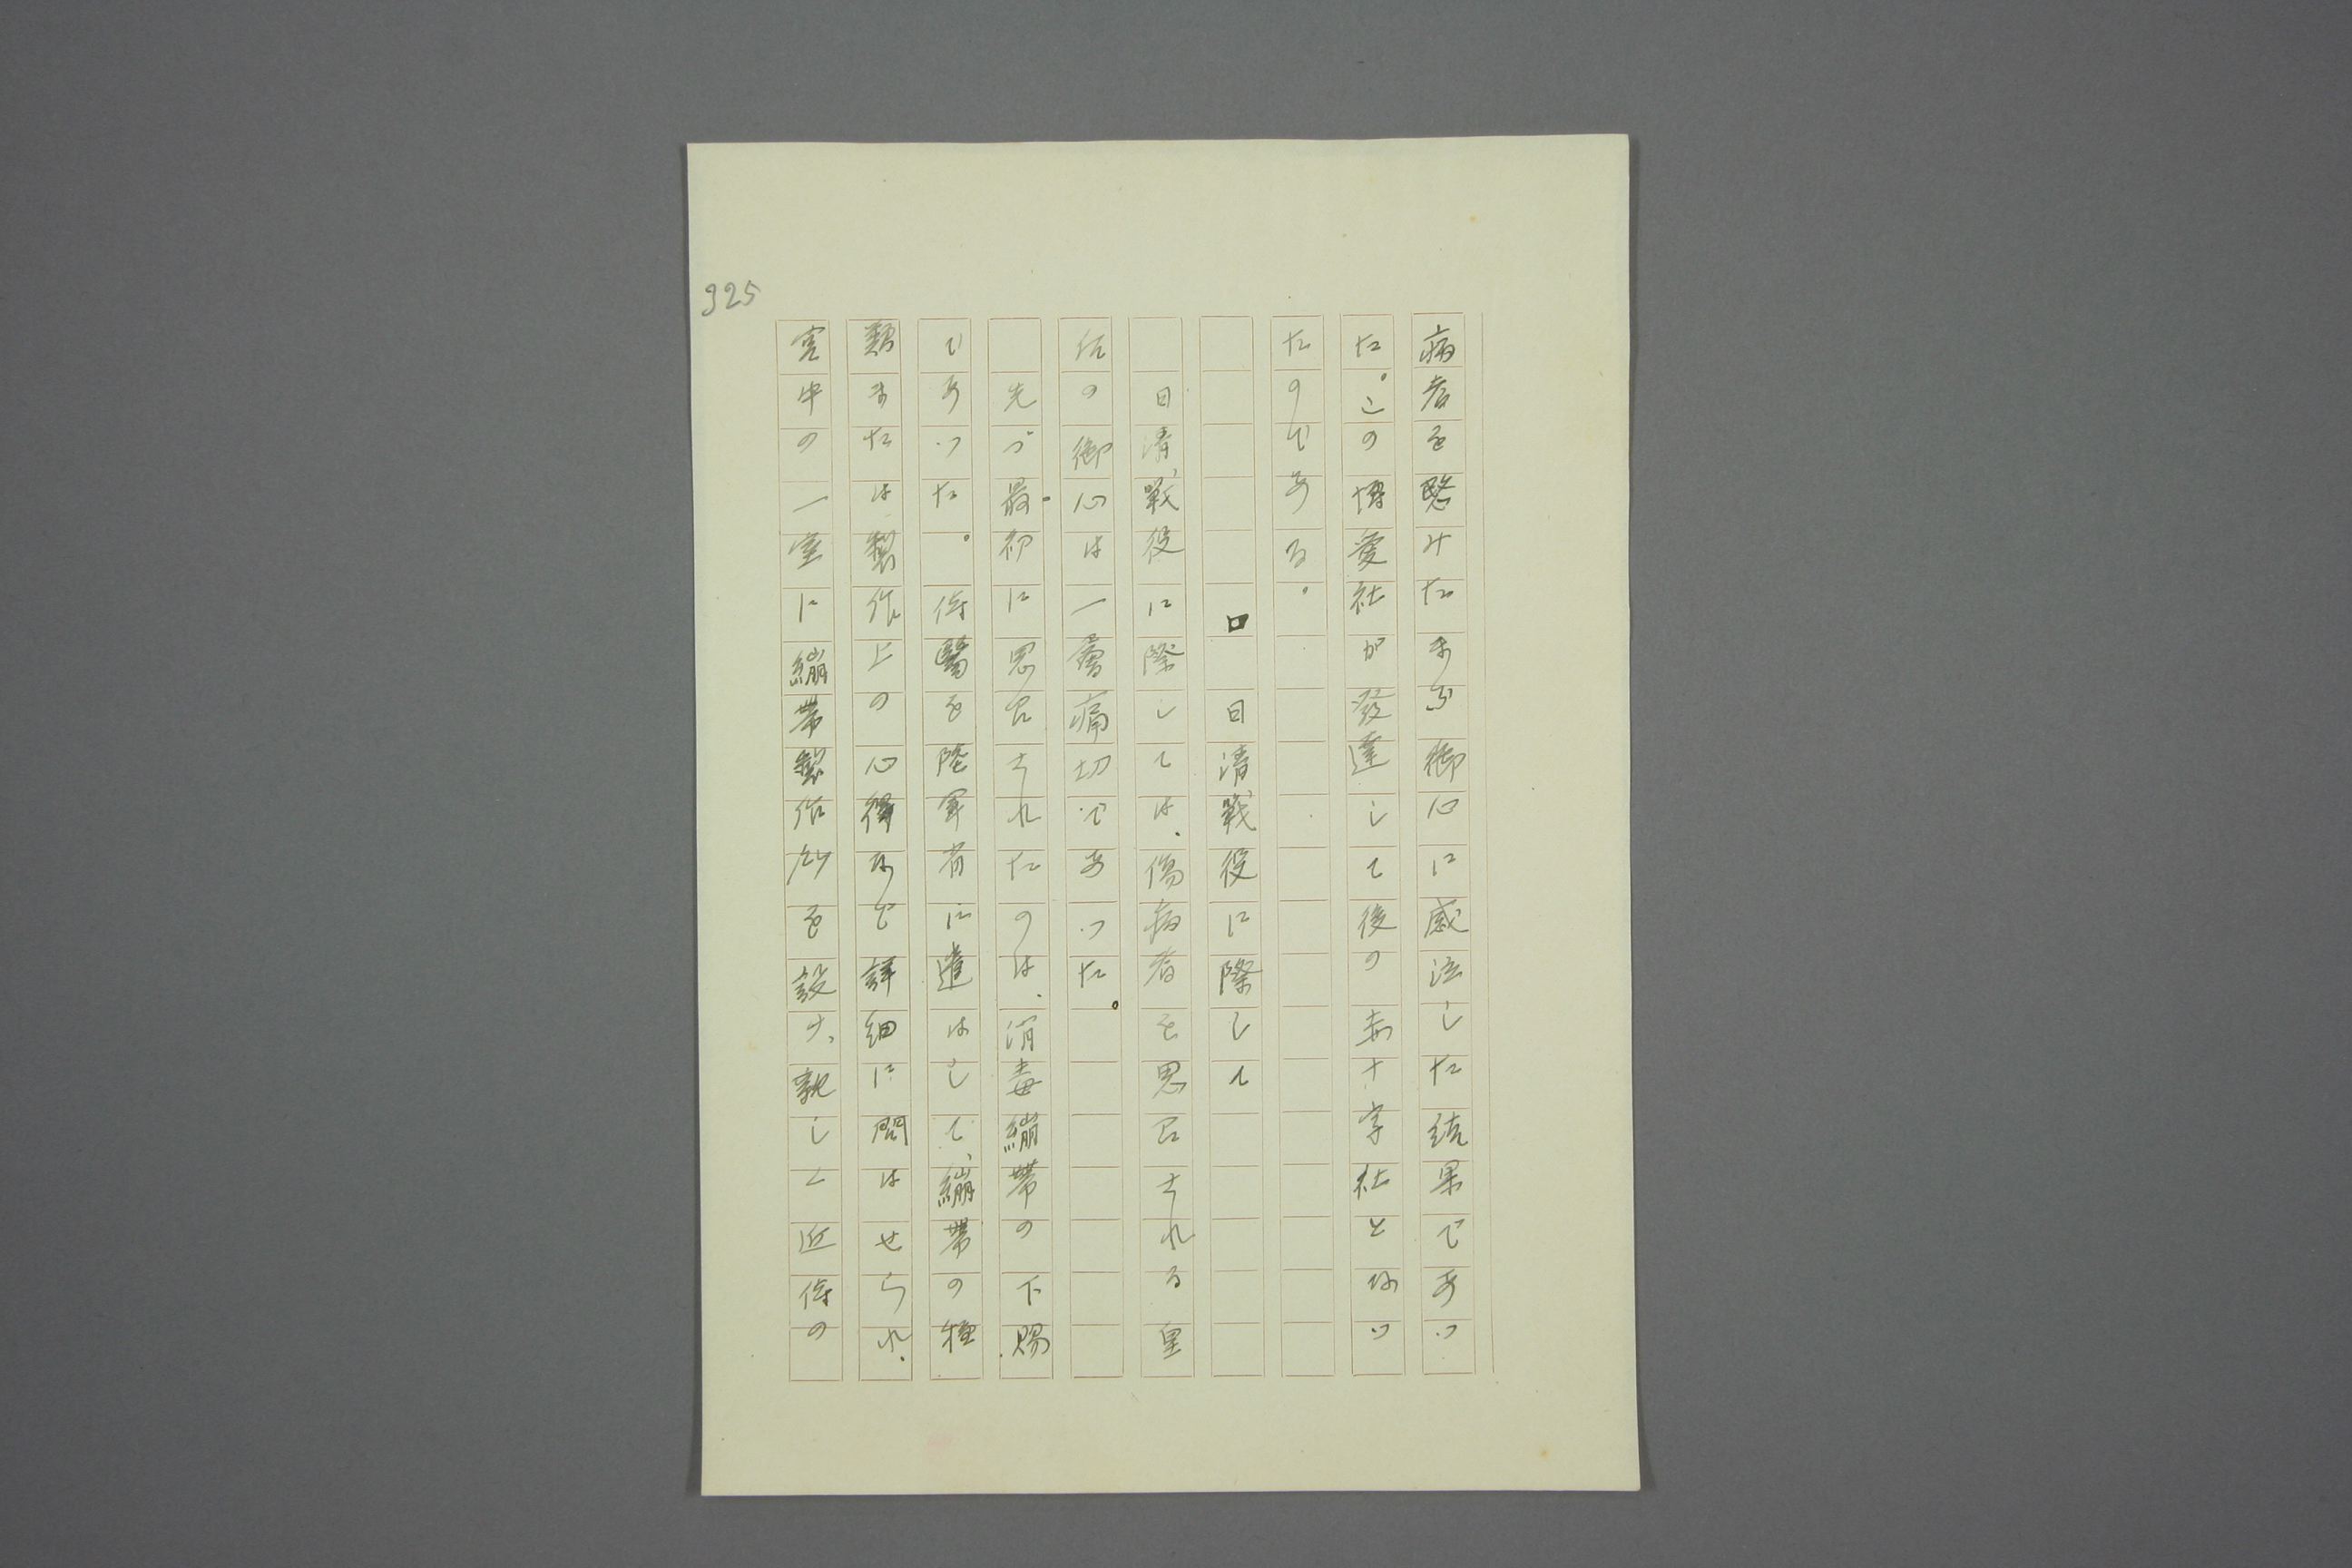 325
病者を愍みたまふ御心に感泣した結果であつ
た。この博愛社が發達して後の赤十字社となつ
たのである。
□　日清戰役に際して
日清戰役に際しては、傷病者を思召される皇
后の御心は一層痛切であつた。
先づ最初に思召されたのは、消毒繃帶の下賜
であつた。侍醫を陸軍省に遣はして、繃帶の種
類または製作上の心得など詳細に問はせられ、
宮中の一室に繃帶製作所を設け、親しく近侍の